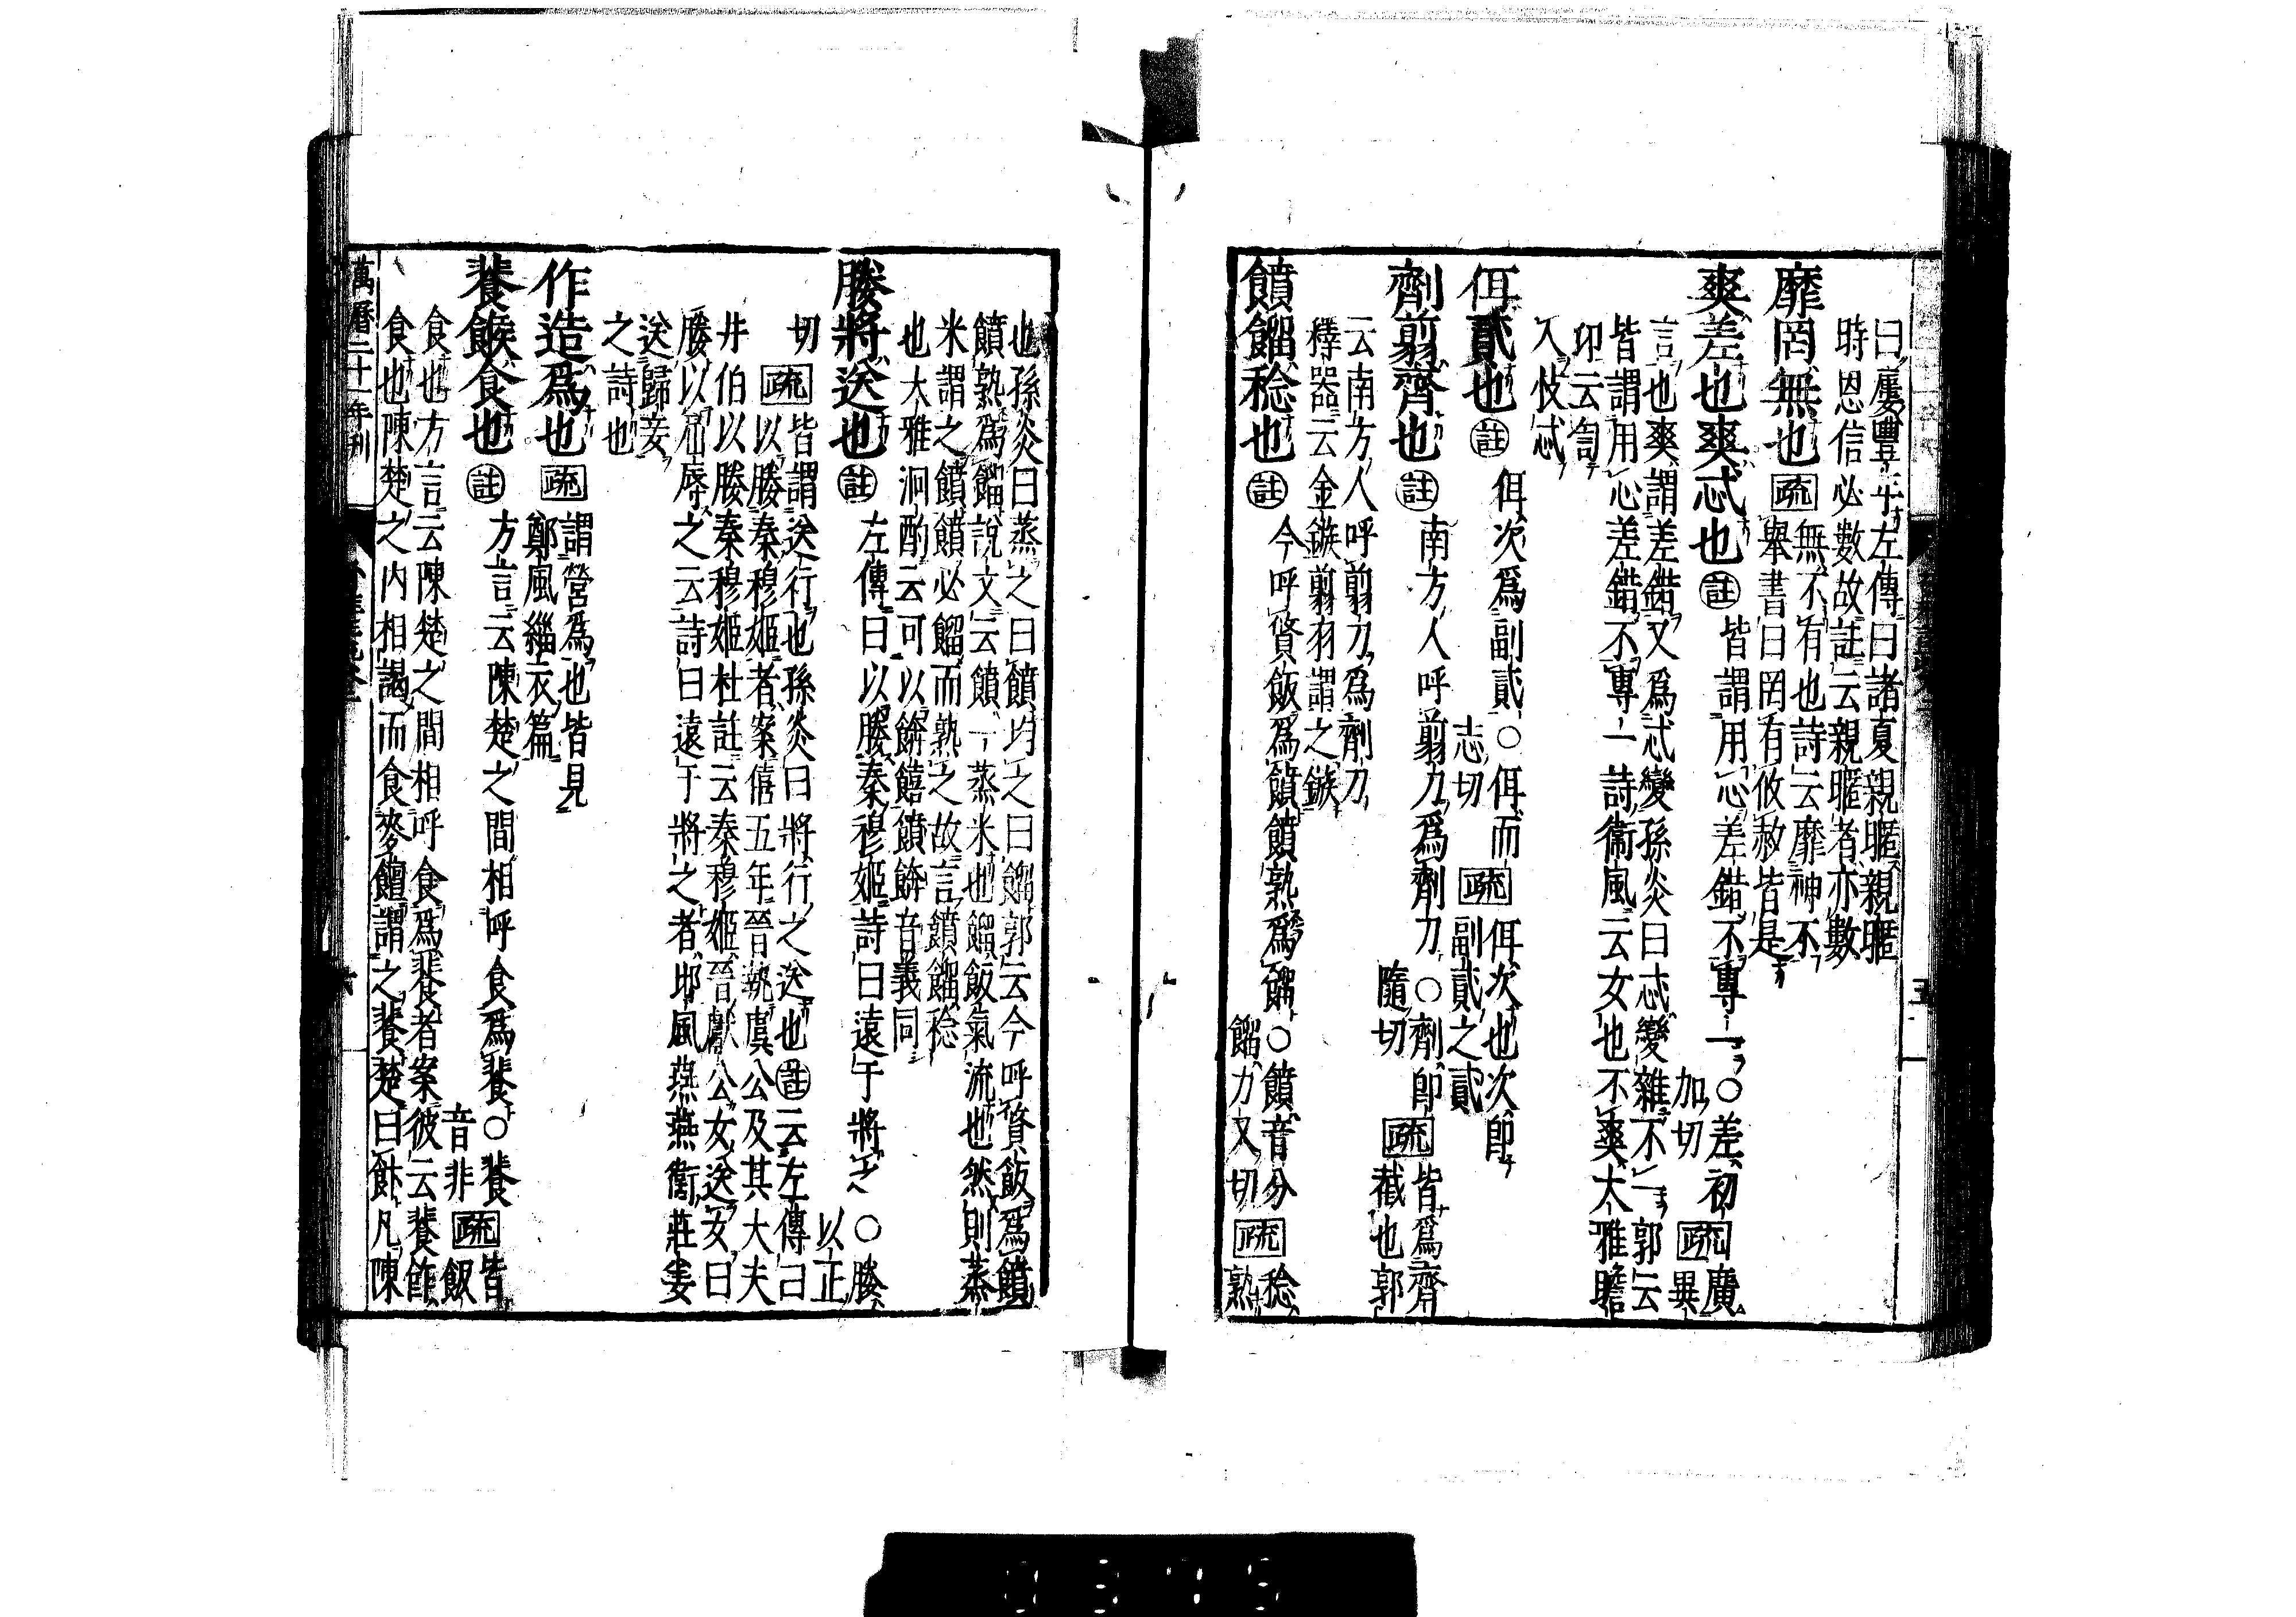 曰屢豐年左傳曰諸夏親暱親暱
時恩信必數故註云親暱者亦數
靡罔無也疏無不有也詩云靡神不
舉書曰罔有攸赦皆是
爽差也爽忒也註皆謂用心差錯不專一○差初
加切疏廣異
言也爽謂差錯又爲忒變孫炎曰忒變雜不一郭云
皆謂用心差錯不專一詩衞風云女也不爽大雅瞻
卬云訇
入忮忒
佴貳也註佴次爲副貳○佴而
志切疏佴次也次即
副貳之貳
劑翦齊也註南方人呼翦刀爲劑刀○劑即
隨切疏皆爲齊
截也郭
云南方人呼翦刀爲劑刀
釋器云金鏃翦羽謂之鏃
饙餾稔也註今呼䬸飯爲饙饙熟爲餾○饙音分
餾力又切疏稔
熟
也孫炎曰蒸之曰饙均之曰餾郭云今呼䬸飯爲饙
饙熟爲餾說文云饙一蒸米也餾飯氣流也然則蒸
米謂之饙饙必餾而熟之故言饙餾稔
也大雅泂酌云可以餴饎饙餴音義同
媵將送也註左傳曰以媵秦穆姬詩曰遠于將之○媵
以正
切疏皆謂送行也孫炎曰將行之送也註云左傳曰
以媵秦穆姬者案僖五年晉執虞公及其大夫
井伯以媵秦穆姬杜註云秦穆姬晉獻公女送女曰
媵以屈辱之云詩曰遠于將之者邶風燕燕衞莊姜
送歸妾
之詩也
作造爲也疏謂營爲也皆見
鄭風緇衣篇
餥餱食也註方言云陳楚之間相呼食爲餥○餥
音非疏皆
飯
食也方言云陳楚之間相呼食爲餥者案彼云餥飵
食也陳楚之內相謁而食麥饘謂之餥楚曰飵凡陳
萬曆二十一年刊